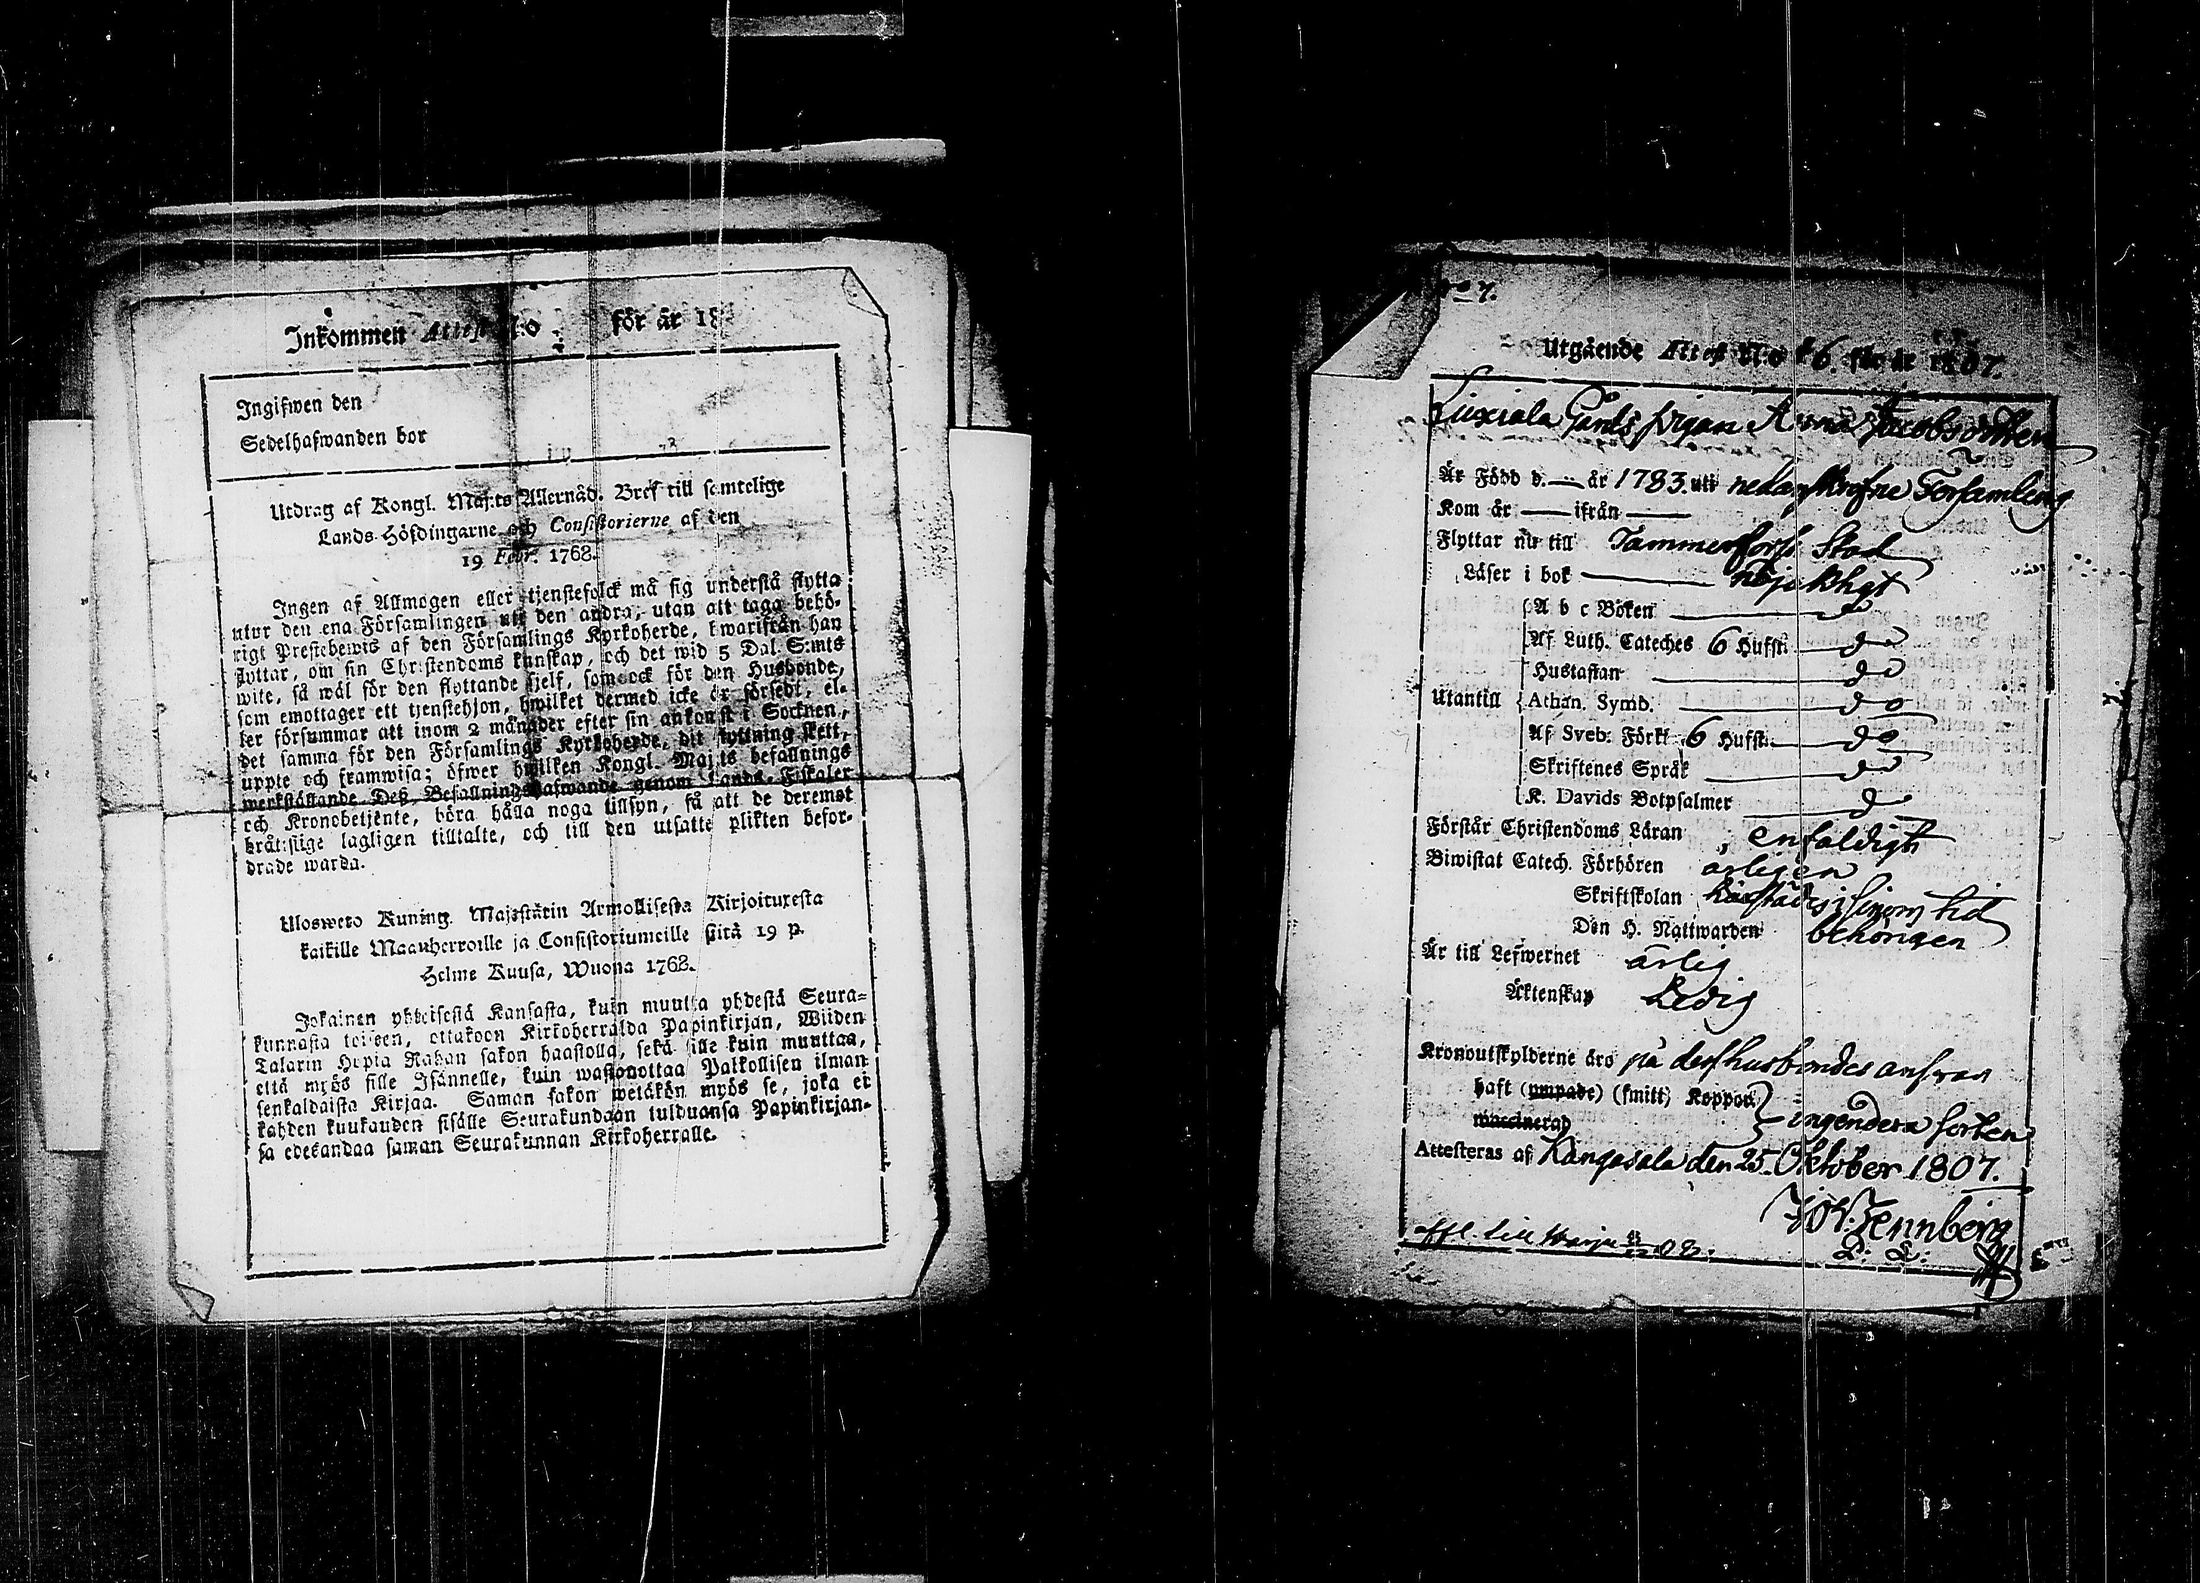 Inkommen Attest N:o för år 18
Ingifwen den
Sedelhafwanden bor
Utdrag af Kongl. Maj:ts Allernåd. Bref till samtelige
Lands-Höfdingarne och Consistorierne af den
19 Febr. 1768.
Ingen af Allmogen eller tjenstefolck må sig understå flytta
utur den ena Församlingen uti den andra, utan att taga behö-
rigt Prestebewis af den Församlings Kyrkoherde, hwarifrån han
flyttar, om sin Christendoms kunskap, och det wid 5 Dal. S:mts
wite, så wäl för den flyttande sjelf, som ock för den Husbonde,
som emottager ett tjenstehjon, hwilket dermed icke är försedt, el-
ler försummar att inom 2 månader efter sin ankomst i Socknen,
det samma för den Församlings Kyrkoherde, dit flyttning skett,
uppte och framwisa; öfwer hwilken Kongl. Maj:ts befallnings
werkställande Deß Befallningshafwande genom Lands-Fiskaler
och Kronobetjente, böra hålla noga tillsyn, så att de deremot
bråttslige lagligen tilltalte, och till den utsatte plikten befor-
drade warda.
Ulosweto Kuning. Majestätin Armollisesta Kirjoituxesta
kaikille Maanherroille ja Consistoriumeille siitä 19 p.
Helme Kuusa, Wuona 1768.
Jokainen yhteisestä Kansasta, kuin muutta yhdestä Seura-
kunnasta toiseen, ottakoon Kirkoherralda Papinkirjan, Wiiden
Talarin Hopia Rahan sakon haastolla, sekä sille kuin muuttaa,
että myös sille Isännelle, kuin wastanottaa Palkollisen ilman
senkaldaista Kirjaa. Saman sakon wetäkön myös se, joka ei
kahden kuukauden sisälle Seurakundaan tulduansa Papinkirjan-
sa edesandaa saman Seurakunnan Kirkoherralle.
No 7.
Utgående Attest N:o 6. för år 1807.
Liuxiala Gårds pigan Anna Jacobsdotter
Är Född d. — år 1783. uti nedanskrefne Församling
Kom år — ifrån —
Flyttar nu till Tammerfors Stad
Läser i bok — nöjaktigt
A b c Boken — do
Af Luth. Cateches 6 Hufst. — do
Hustaflan — do
Utantill Athan. Symb. — do
Af Sveb. Förkl. 6 Hufst. — do
Skriftenes Språk — do
K. Davids Botpsalmer — do
Förstår Christendoms Läran enfaldigt
Biwistat Catech. Förhören årligen
Skriftskolan härstädes i sinom tid
Den H. Nattwarden behörigen
Är till Lefwernet ärlig
Äktenskap Ledig
Kronoutskylderne äro på dess husbondes answar
haft (ympade) (smitt) Koppor
waccinerad ingendera sorten
Attesteras af Kangasala den 25. Oktober 1807.
Wennberg